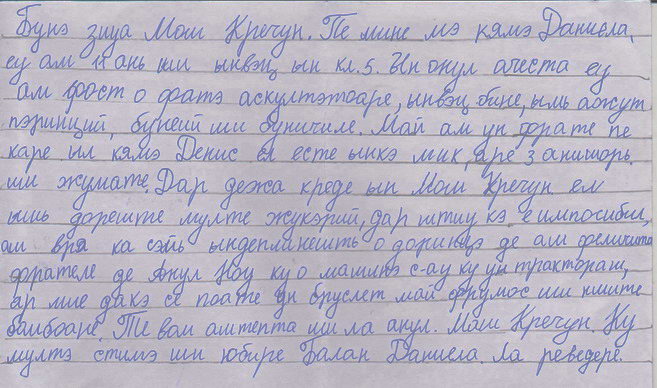 Бунэ зиуа Мош Кречун. Пе мине мэ кямэ Даниела,
еу ам 11 ань ши ынвэц ын кл. 5. Ын онул ачеста еу
ам фост о фатэ аскултэтоаре, ынвэц бине, ымь ажут
пэринций, бунеий ши буничиле. Май ам ун фрате пе
каре ыл кямэ Денис ел есте ынкэ мик, аре 3 анишорь
ши жумате. Дар дежа креде ын Мош Кречун ел
ышь дореште мулте жукэрий, дар штиу кэ е импосибил,
ам вря ка сэйь ындеплинешть о доринцэ де ам феличита
фрателе де Анул Ноу ку о машинэ с-ау ку ун трактораш,
яр мие дакэ се поате ун бруслет май фрумос ши ниште
баибоане. Те вом аштепта ши ла анул. Мош Кречун. Ку
мултэ стимэ ши юбире Балан Даниела. Ла реведере.